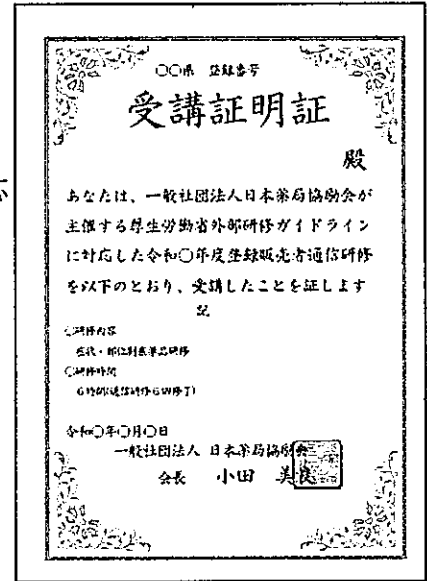 〇〇県 登録番号
受講証明証
殿
あなたは、一般社団法人日本薬局協励会が
主催する厚生労働省外部研修ガイドライン
に対応した令和〇年度登録販売者通信研修
を以下のとおり、受講したことを証します
記
〇研修内容
症状・部位別医薬品研修
〇研修時間
6時間(通信研修6H修了)
令和〇年〇月〇日
一般社団法人 日本薬局協励会
会長 小田 美良